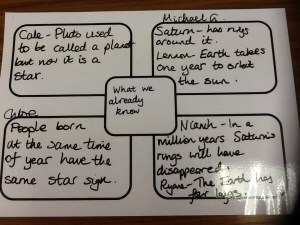 Cale - Pluto used
to be called a planet
but now it is a
star.
Michael G.
Saturn - has rings
around it.
Lennon - Earth takes
one year to orbit
the sun.
What we
already
know
Chloe
People born
at the same time
of year have the
same star sign.
Niamh - In a
million years Saturn's
rings will have
disappeared.
Ryan - The Earth has
four layers